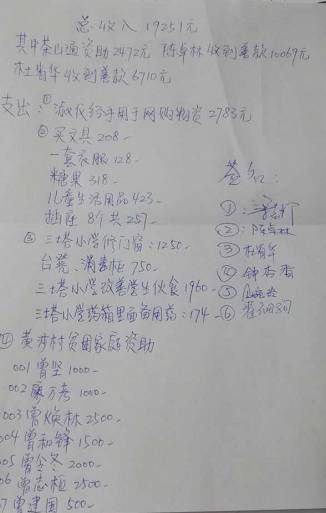 总收入 19251元
其中茶山通资助2472元 陈卓林收到善款10069元
杜肖华收到善款6710元
支出：① 淑仪经手用于网购物资2783元
② 买文具 208-
一套衣服 128-
糖果 318-
儿童生活用品 423-
插座 8个共 257-
③ 三塔小学修门窗：1250-
台凳、消毒柜 750-
三塔小学改善学生伙食 1960-
三塔小学药箱里面备用药：174-
签名：
①：
②：陈卓林
③ 杜肖华
④ 钟杏香
⑤
⑥
④ 黄沙村贫困家庭资助
001 曾坚 1000-
002 廖万考 1000-
003 曾焕林 2500-
004 曾和锋 1500-
005 曾冬 2000-
06 曾志桓 2500-
7 曾建国 500-